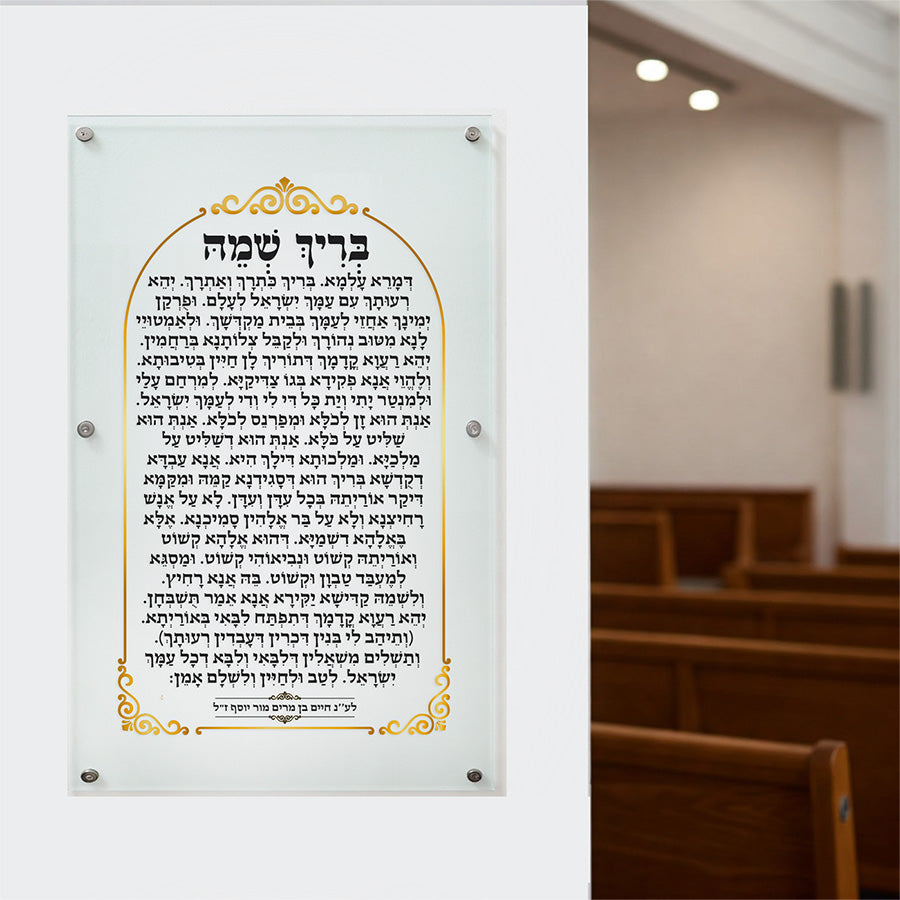 בְּרִיךְ שְׁמֵהּ
דְּמָרֵא עָלְמָא. בְּרִיךְ כִּתְרָךְ וְאַתְרָךְ. יְהֵא
רְעוּתָךְ עִם עַמָּךְ יִשְׂרָאֵל לְעָלַם. וּפֻרְקַן
יְמִינָךְ אַחֲזֵי לְעַמָּךְ בְּבֵית מַקְדְּשָׁךְ. וּלְאַמְטוּיֵי
לָנָא מִטּוּב נְהוֹרָךְ וּלְקַבֵּל צְלוֹתָנָא בְּרַחֲמִין.
יְהֵא רַעֲוָא קֳדָמָךְ דְּתוֹרִיךְ לָן חַיִּין בְּטִיבוּתָא.
וְלֶהֱוֵי אֲנָא פְקִידָא בְּגוֹ צַדִּיקַיָּא. לְמִרְחַם עָלַי
וּלְמִנְטַר יָתִי וְיָת כָּל דִּי לִי וְדִי לְעַמָּךְ יִשְׂרָאֵל.
אַנְתְּ הוּא זָן לְכֹלָּא וּמְפַרְנֵס לְכֹלָּא. אַנְתְּ הוּא
שַׁלִּיט עַל כֹּלָּא. אַנְתְּ הוּא דְשַׁלִּיט עַל
מַלְכַיָּא. וּמַלְכוּתָא דִּילָךְ הִיא. אֲנָא עַבְדָּא
דְקֻדְשָׁא בְּרִיךְ הוּא דְּסָגִידְנָא קַמֵּהּ וּמִקַּמָּא
דִּיקַר אוֹרַיְתֵהּ בְּכָל עִדָּן וְעִדָּן. לָא עַל אֱנָשׁ
רָחִיצְנָא וְלָא עַל בַּר אֱלָהִין סָמִיכְנָא. אֶלָּא
בֶּאֱלָהָא דִשְׁמַיָּא. דְּהוּא אֱלָהָא קְשׁוֹט
וְאוֹרַיְתֵהּ קְשׁוֹט וּנְבִיאוֹהִי קְשׁוֹט. וּמַסְגֵּא
לְמֶעְבַּד טַבְוָן וּקְשׁוֹט. בֵּהּ אֲנָא רָחִיץ.
וְלִשְׁמֵהּ קַדִּישָׁא יַקִּירָא אֲנָא אֵמַר תֻּשְׁבְּחָן.
יְהֵא רַעֲוָא קֳדָמָךְ דְּתִפְתַּח לִבָּאִי בְּאוֹרַיְתָא.
(וְתֵיהַב לִי בְּנִין דִּכְרִין דְּעָבְדִין רְעוּתָךְ).
וְתַשְׁלִים מִשְׁאֲלִין דְּלִבָּאִי וְלִבָּא דְכָל עַמָּךְ
יִשְׂרָאֵל. לְטַב וּלְחַיִּין וְלִשְׁלָם אָמֵן:
לע''נ חיים בן מרים מור יוסף ז"ל